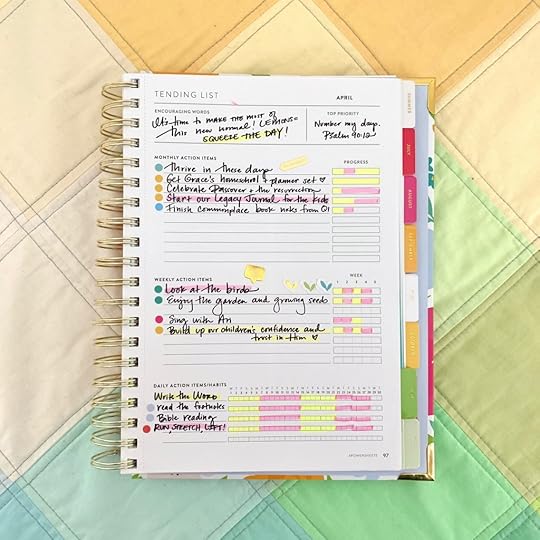 TENDING LIST
APRIL
ENCOURAGING WORDS
It's time to MAKE THE MOST of
this new normal! LEMONS=
SQUEEZE THE DAY!
TOP PRIORITY
Number my days.
Psalm 90:12
MONTHLY ACTION ITEMS
PROGRESS
Thrive in these days
Get Grace's homeschool + planner set ♡
Celebrate Passover + the resurrection
Start our Legacy Journal for the kids
Finish commonplace book notes from Q1
WEEKLY ACTION ITEMS
WEEK
1 2 3 4 5
Look at the birds
Enjoy the garden and growing seeds
Sing with Ari
Build up our children's confidence and
trust in Him ♡
DAILY ACTION ITEMS/HABITS
Write the Word
read the footnotes
Bible reading
RUN, STRETCH, LIFT!
POWERSHEETS 97
SUMMER
JULY
AUGUST
SEPTEMBER
OCTOBER